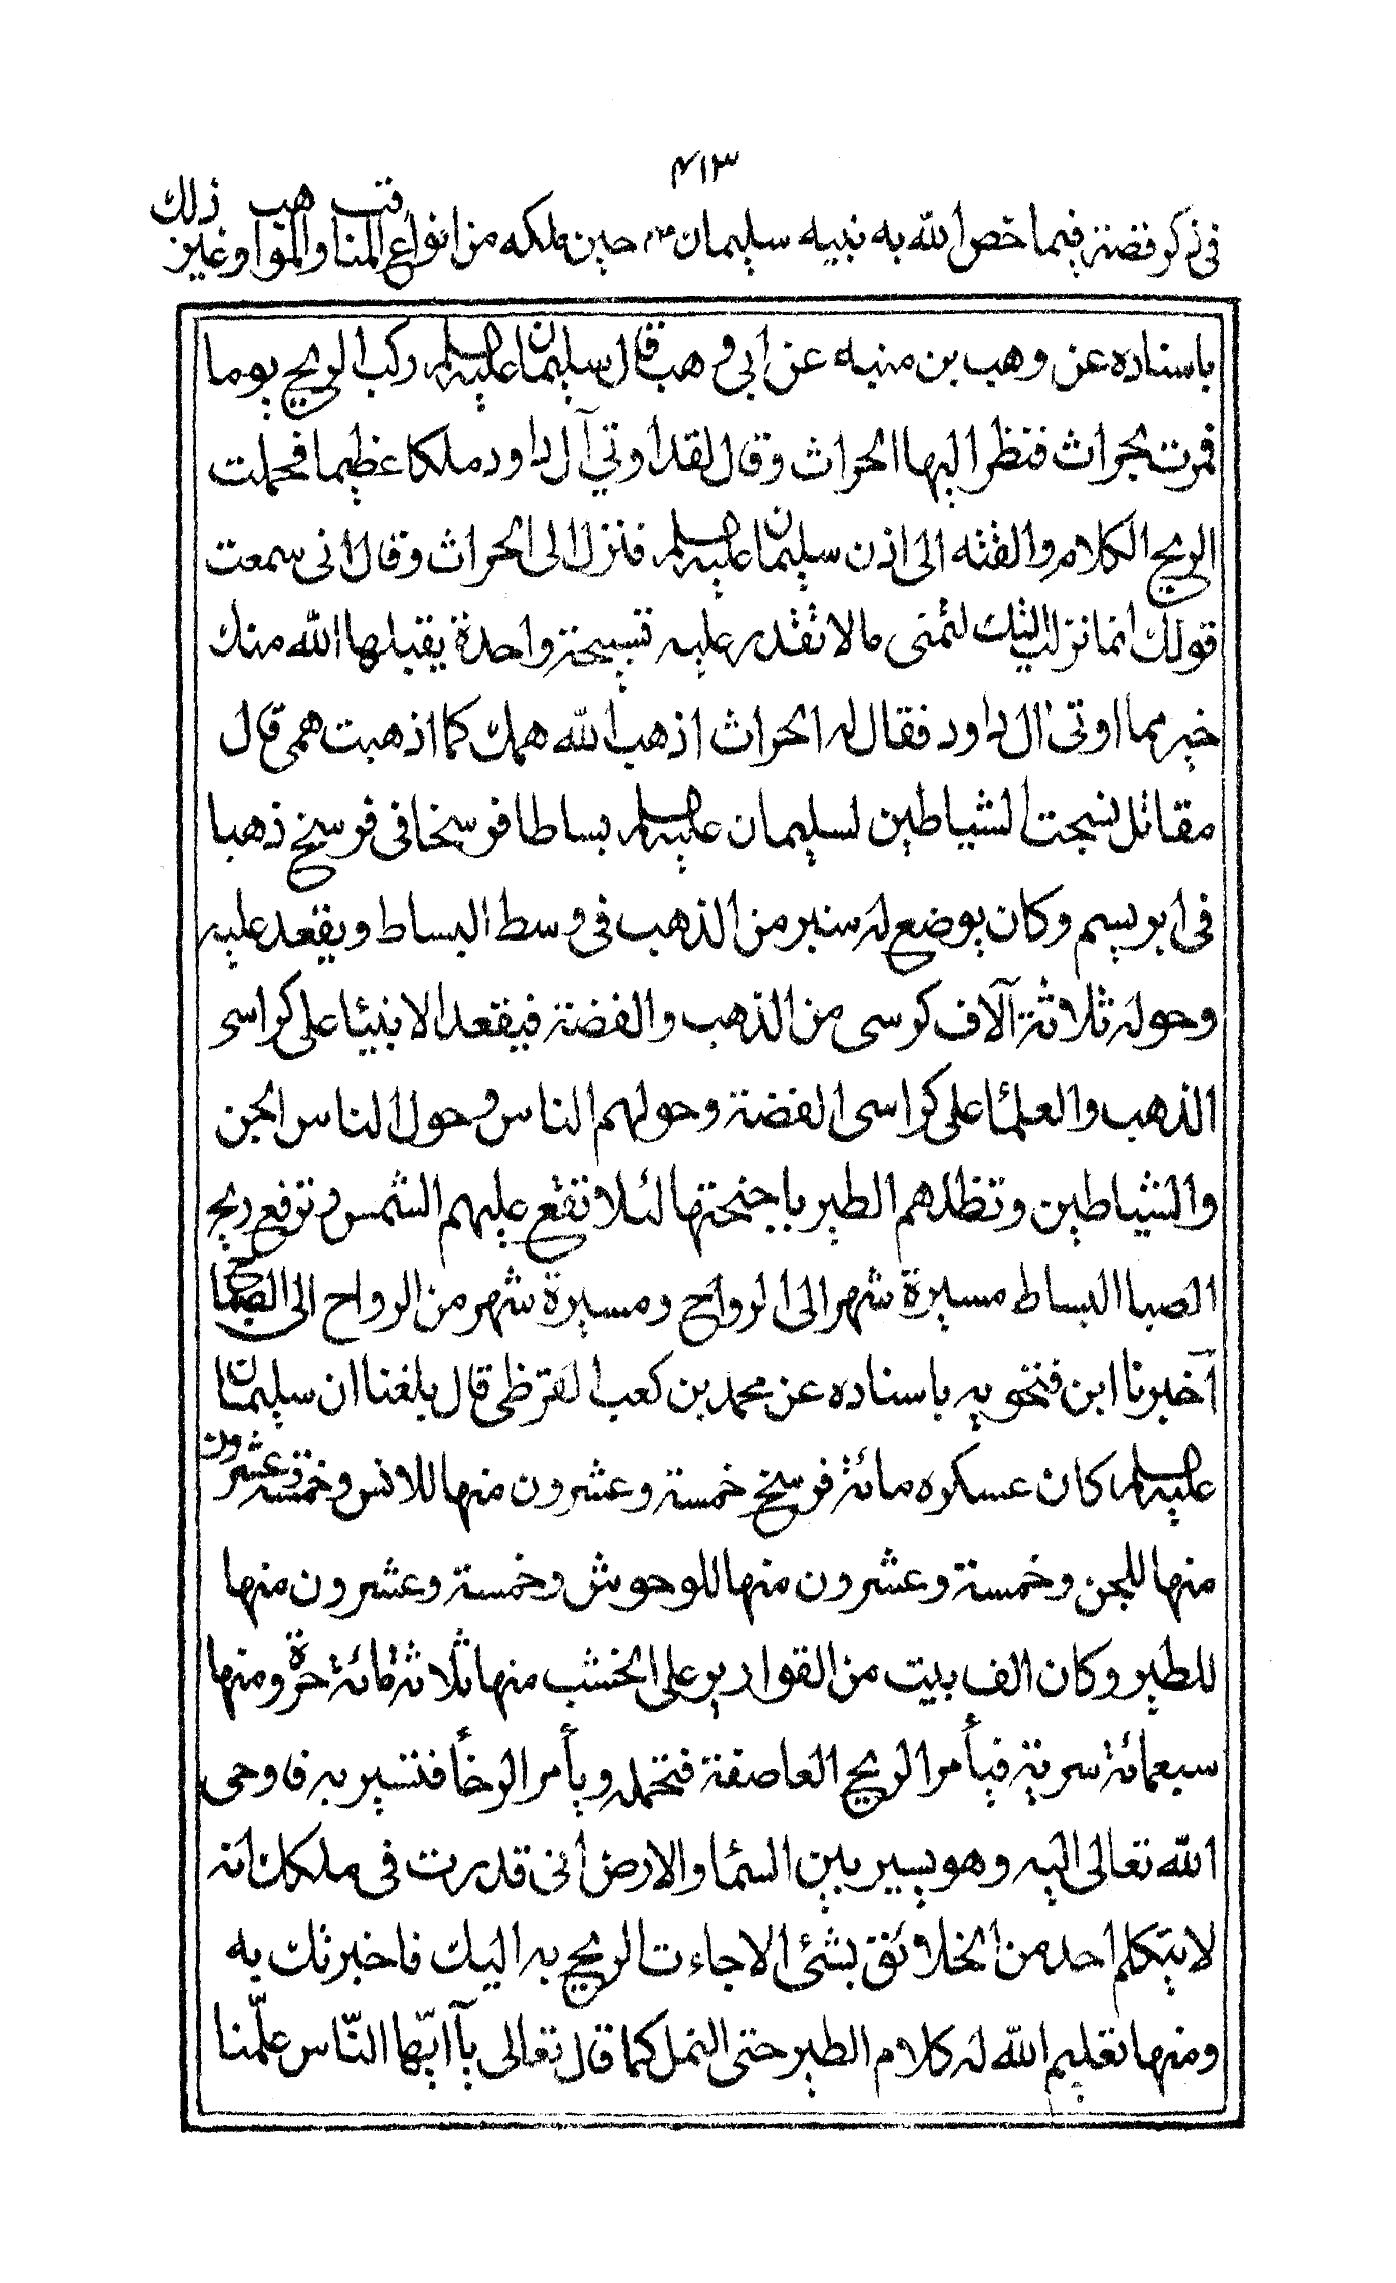 ٤١٣
في ذكر قصة فيما خص الله به نبيه سليمان عم حين ملكه من انواع المناقب والمواهب وغير ذلك
باسناده عن وهب بن منبه عن ابي وهب قال سليمان عليه السلم ركب الريح يوما
فمرت بحراث فنظر اليها الحراث وقال لقد اوتي آل داود ملكا عظيما فحملت
الريح الكلام والقته الى اذن سليمان عليه السلم فنزل الى الحراث وقال انى سمعت
قولك انما نزلت اليك لئمنى مالا تقدر عليه تسبيحة واحدة يقبلها الله منك
خير مما اوتى ال داود فقال له الحراث اذهب الله همك كما اذهبت همى قال
مقاتل نسجت الشياطين لسليمان عليه السلم بساطا فرسخا فى فرسخ ذهبا
فى ابريسم وكان يوضع له منبر من الذهب فى وسط البساط ويقعد عليه
وحوله ثلاثة آلاف كرسى من الذهب والفضة فيقعد الانبئا على كراسى
الذهب والعلمأ على كراسى الفضة وحولهم الناس وحول الناس الجن
والشياطين وتظلهم الطير باجنحتها لئلا تقع عليهم الشمس وترفع ريح
الصبا البساط مسيرة شهر الى الرواح ومسيرة شهر من الرواح الى الصباح
آخبرنا ابن فتحويه باسناده عن محمد بن كعب القرظى قال بلغنا ان سليمان
عليه السلم كان عسكره مائة فرسخ خمسة وعشرون منها للانس وخمسة وعشرون
منها للجن وخمسة وعشرون منها للوحوش وخمسة وعشرون منها
للطير وكان الف بيت من القوارير على الخشب منها ثلاثمائة حرة ومنها
سبعمائة سرية فيأمر الريح العاصفة فتحمله ويأمر الرخأ فتسير به فاوحى
الله تعالى اليه وهو يسير بين السمأ والارض أنى قدرت فى ملكك انه
لا يتكلم احد من الخلائق بشئ الا جاءت الريح به اليك فاخبرتك به
ومنها تعليم الله له كلام الطير حتى النمل كما قال تعالى يآ ايّها النّاس علّمنا